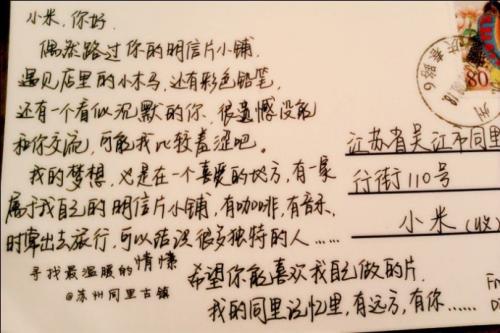 小米,你好.
偶然路过你的明信片小铺.
遇见店里的小木马,还有彩色铅笔,
还有一个看似沉默的你、很遗憾没能
和你交流,可能我比较羞涩吧。
我的梦想,也是在一个喜爱的地方,有一家
属于我自己的明信片小铺,有咖啡,有音乐,
时常出去旅行,可以结识很多独特的人……
寻找最温暖的情愫
@苏州同里古镇
希望你能喜欢我自己做的片.
我的同里记忆里,有远方,有你……
80
江苏省吴江市同里
行街110号
小米(收)